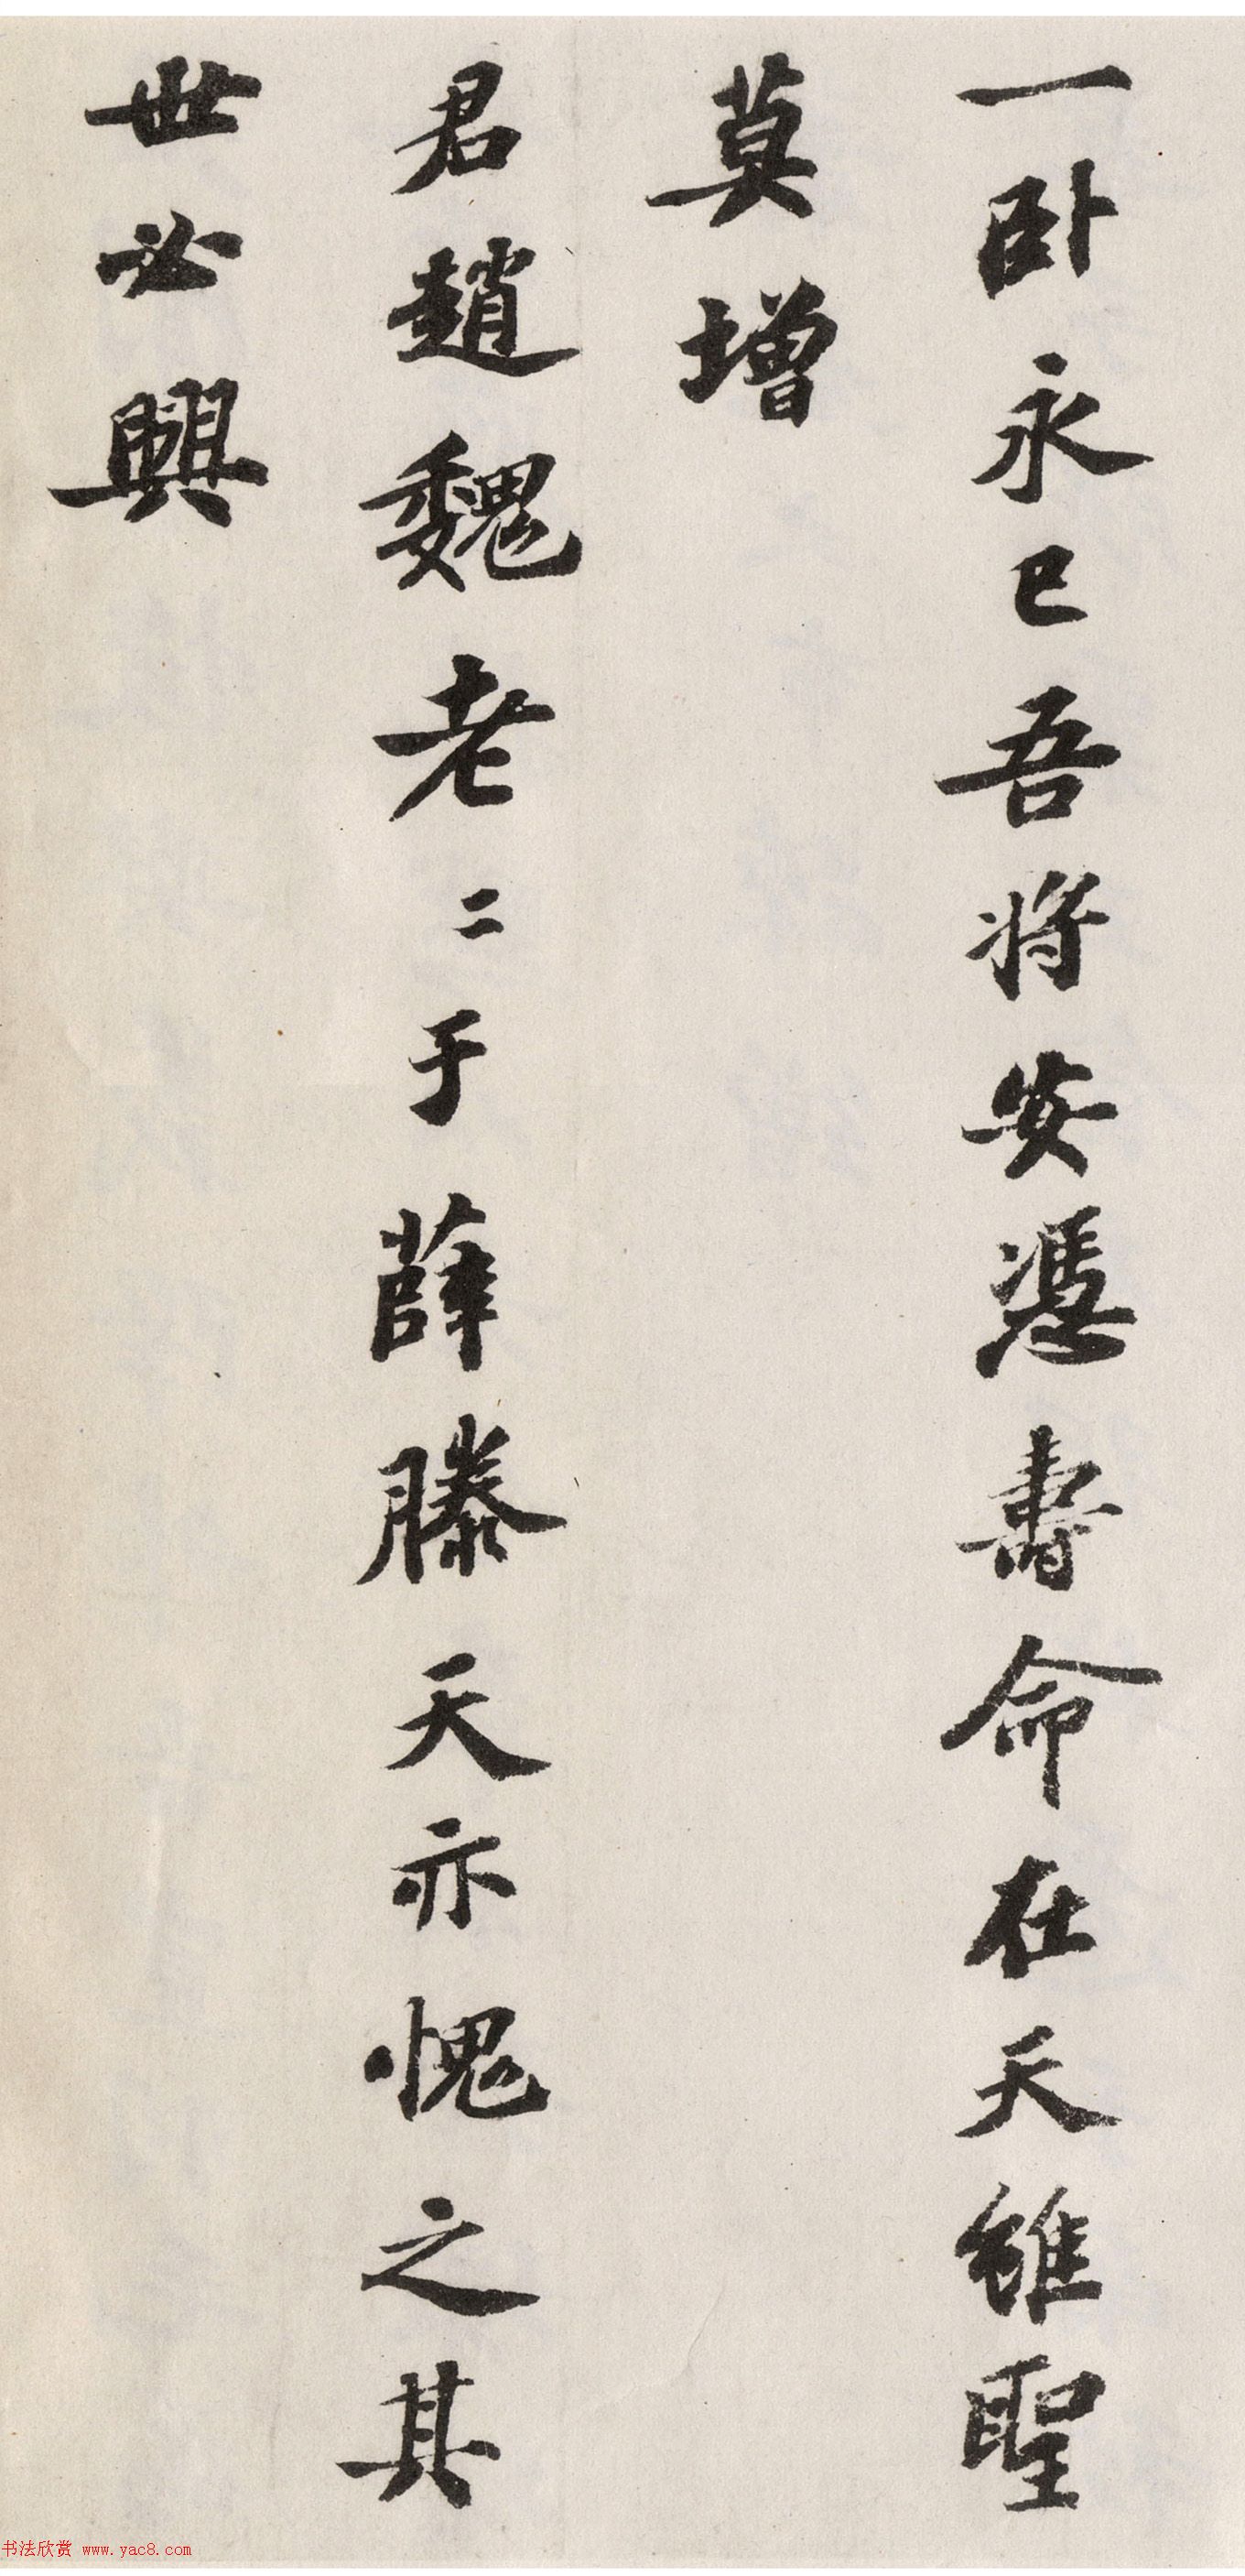 一卧永已吾將安憑壽命在天雖聖
莫增
君趙魏老二于薛滕天亦愧之其
世必興
书法欣赏 www.yac8.com